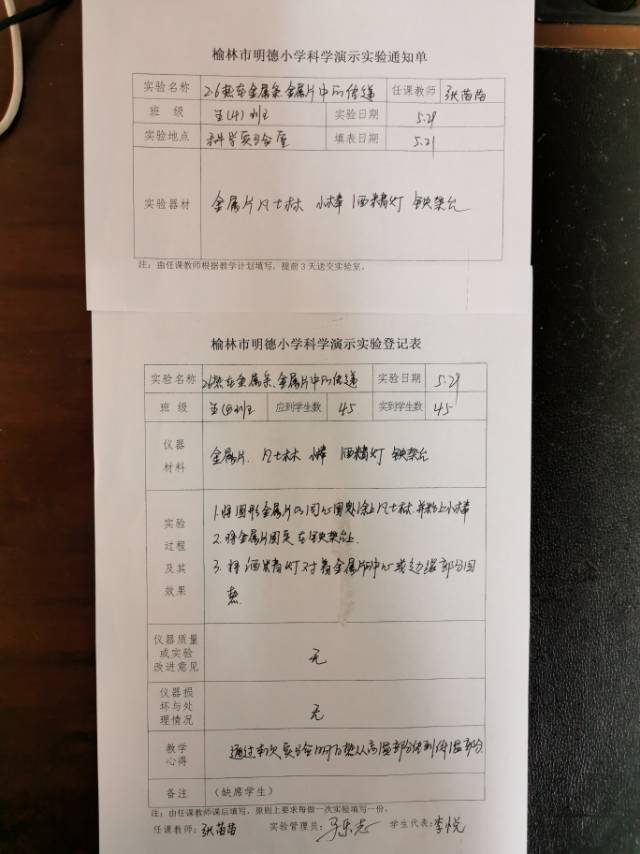 榆林市明德小学科学演示实验通知单
实验名称 2.6热在金属条、金属片中的传递 任课教师 张苗苗
班 级 五(4)班 实验日期 5.29
实验地点 科学实验室 填表日期 5.21
实验器材 金属片 凡士林 小棒 酒精灯 铁架台
注：由任课教师根据教学计划填写，提前3天送交实验室。
榆林市明德小学科学演示实验登记表
实验名称 2.6热在金属条、金属片中的传递 实验日期 5.29
班 级 五(4)班 应到学生数 45 实到学生数 45
仪器
材料
金属片、凡士林 小棒 酒精灯 铁架台
实验
过程
及其
效果
1.将圆形金属片以同心圆形涂上凡士林,并粘上小棒
2.将金属片固定在铁架台上.
3.将酒精灯对着金属片中心或边缘部分加
热.
仪器质量
或实验
改进意见
无
仪器损
坏与处
理情况
无
教学
心得
通过本次实验明白热从高温部分传到低温部分.
备注 （缺席学生）
注：由任课教师课后填写，原则上要求每做一次实验填写一份。
任课教师：张苗苗 实验管理员： 学生代表：李悦